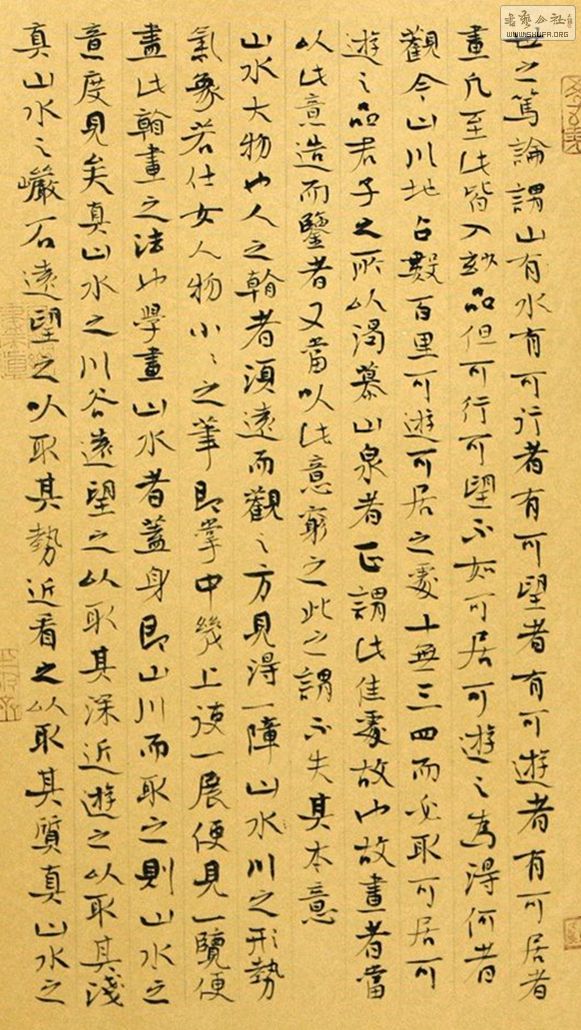 书艺公社
WWW.SHUFA.ORG
世之篤論謂山有水有可行者有可望者有可遊者有可居者
畫凡至此皆入妙品但可行可望不如可居可遊之為得何者
觀今山川地占數百里可遊可居之處十無三四而必取可居可
遊之品君子之所以渴慕山泉者正謂此佳處故也故畫者當
以此意造而鑒者又當以此意窮之此之謂不失其本意
山水大物也人之翰者須遠而觀之方見得一障山水川之形勢
氣象若仕女人物小小之筆即掌中幾上一展便見一覽便
盡此翰畫之法也學畫山水者蓋身即山川而取之則山水之
意度見矣真山水之川谷遠望之以取其深近遊之以取其淺
真山水之巖石遠望之以取其勢近看之以取其質真山水之